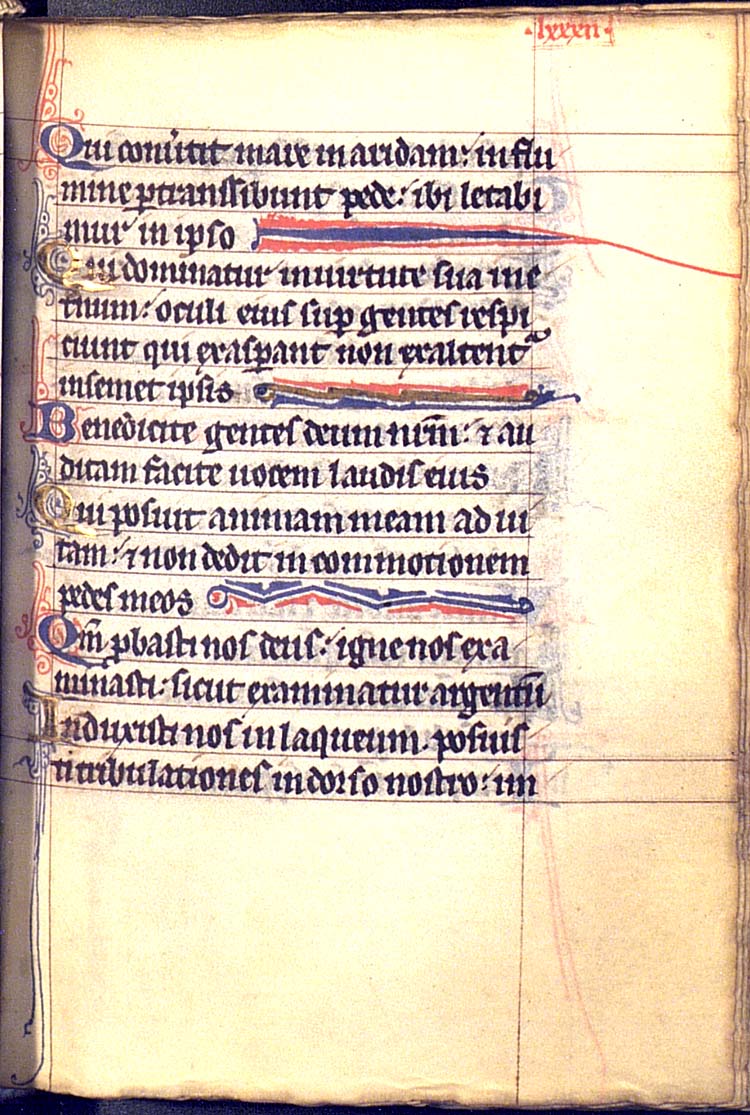 ·lxxxii·
Qui conũtit mare in aridam: in flu
mine ꝑtranssibunt pede: ibi letabi
mur in ipso
Qui dominatur in uirtute sua in e
tnum: oculi eius suꝑ gentes respi
ciunt qui exasꝑant non exaltentᵃ
in semet ipsis
Benedicite gentes deum nr̃m: ⁊ au
ditam facite uocem laudis eius
Qui posuit animam meam ad ui
tam: ⁊ non dedit in commotionem
pedes meos
Qm̃ ꝓbasti nos deus: igne nos exa
minasti: sicut examinatur argentũ
Induxisti nos in laqueum. posuis
ti tribulationes in dorso nostro: im